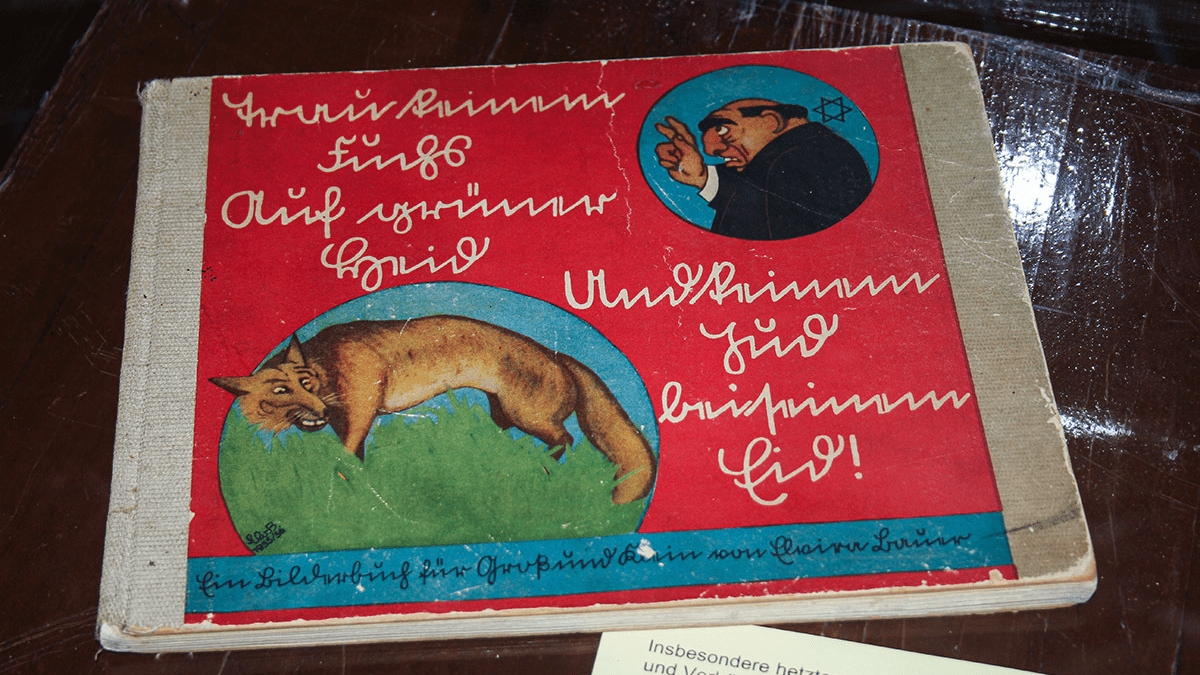 Trau keinem
Fuchs
Auf grüner
Heid
Und keinem
Jud
bei seinem
Eid!
Ein Bilderbuch für Groß und Klein von Elvira Bauer
1935/36
Insbesondere hetzte
und